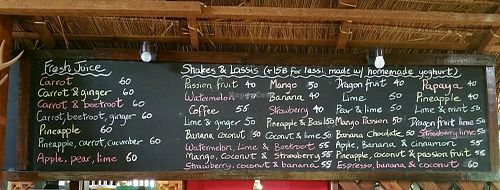 Fresh Juice
Carrot 60
Carrot & ginger 60
Carrot & beetroot 60
Carrot, beetroot, ginger 60
Pineapple 60
Pineapple, carrot, cucumber 60
Apple, pear, lime 60
Shakes & Lassis (+15B for lassi, made w/ homemade yoghurt)
Passion fruit 40 Mango 50 Dragon fruit 40 Papaya 40
Watermelon Banana 40 Lime Pineapple 40
Coffee 55 Strawberry 40 Pear & lime 50 Lime & mint 50
Lime & ginger 50 Pineapple & Basil 50 Mango Passion 50 Dragon fruit lime 50
Banana, coconut 50 Coconut & lime 50 Banana Chocolate 50 Strawberry lime 50
Watermelon, Lime & Beetroot 55 Apple, Banana & cinnamon 55
Mango, Coconut & Strawberry 55 Pineapple, coconut & passion fruit 55
Strawberry, coconut & banana 55 Espresso, banana & coconut 60